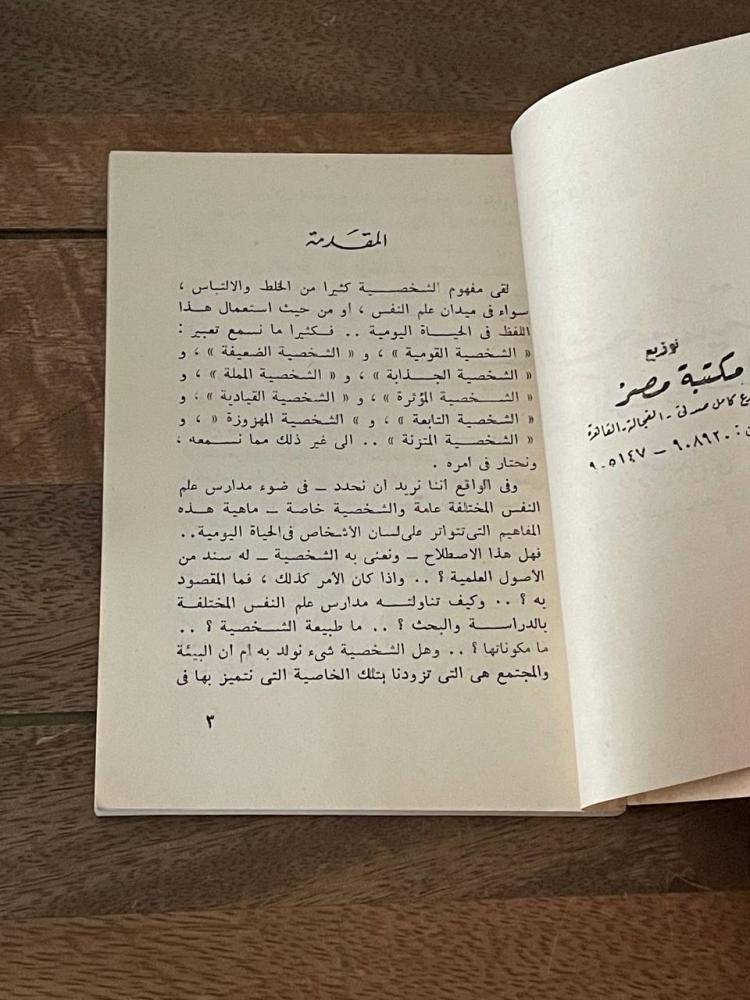 توزيع
مكتبة مصر
كامل صدقى - الفجالة - القاهرة
٩٠٨٩٢٠ - ٩٠٥١٤٧
المقدمة
لقى مفهوم الشخصية كثيرا من الخلط والالتباس ،
سواء فى ميدان علم النفس ، او من حيث استعمال هذا
اللفظ فى الحياة اليومية .. فكثيرا ما نسمع تعبير :
« الشخصية القومية » ، و « الشخصية الضعيفة » ، و
« الشخصية الجذابة » ، و « الشخصية المملة » ، و
« الشخصية المؤثرة » ، و « الشخصية القيادية » ، و
« الشخصية التابعة » ، و » الشخصية المهزوزة » ، و
« الشخصية المتزنة » .. الى غير ذلك مما نسمعه ،
ونحتار فى امره .
وفى الواقع اننا نريد ان نحدد ــ فى ضوء مدارس علم
النفس المختلفة عامة والشخصية خاصة ــ ماهية هذه
المفاهيم التى تتواتر على لسان الأشخاص فى الحياة اليومية ..
فهل هذا الاصطلاح ــ ونعنى به الشخصية ــ له سند من
الأصول العلمية ؟ .. واذا كان الأمر كذلك ، فما المقصود
به ؟ .. وكيف تناولته مدارس علم النفس المختلفة
بالدراسة والبحث ؟ .. ما طبيعة الشخصية ؟ ..
ما مكوناتها ؟ .. وهل الشخصية شىء نولد به أم ان البيئة
والمجتمع هى التى تزودنا بتلك الخاصية التى نتميز بها فى
٣